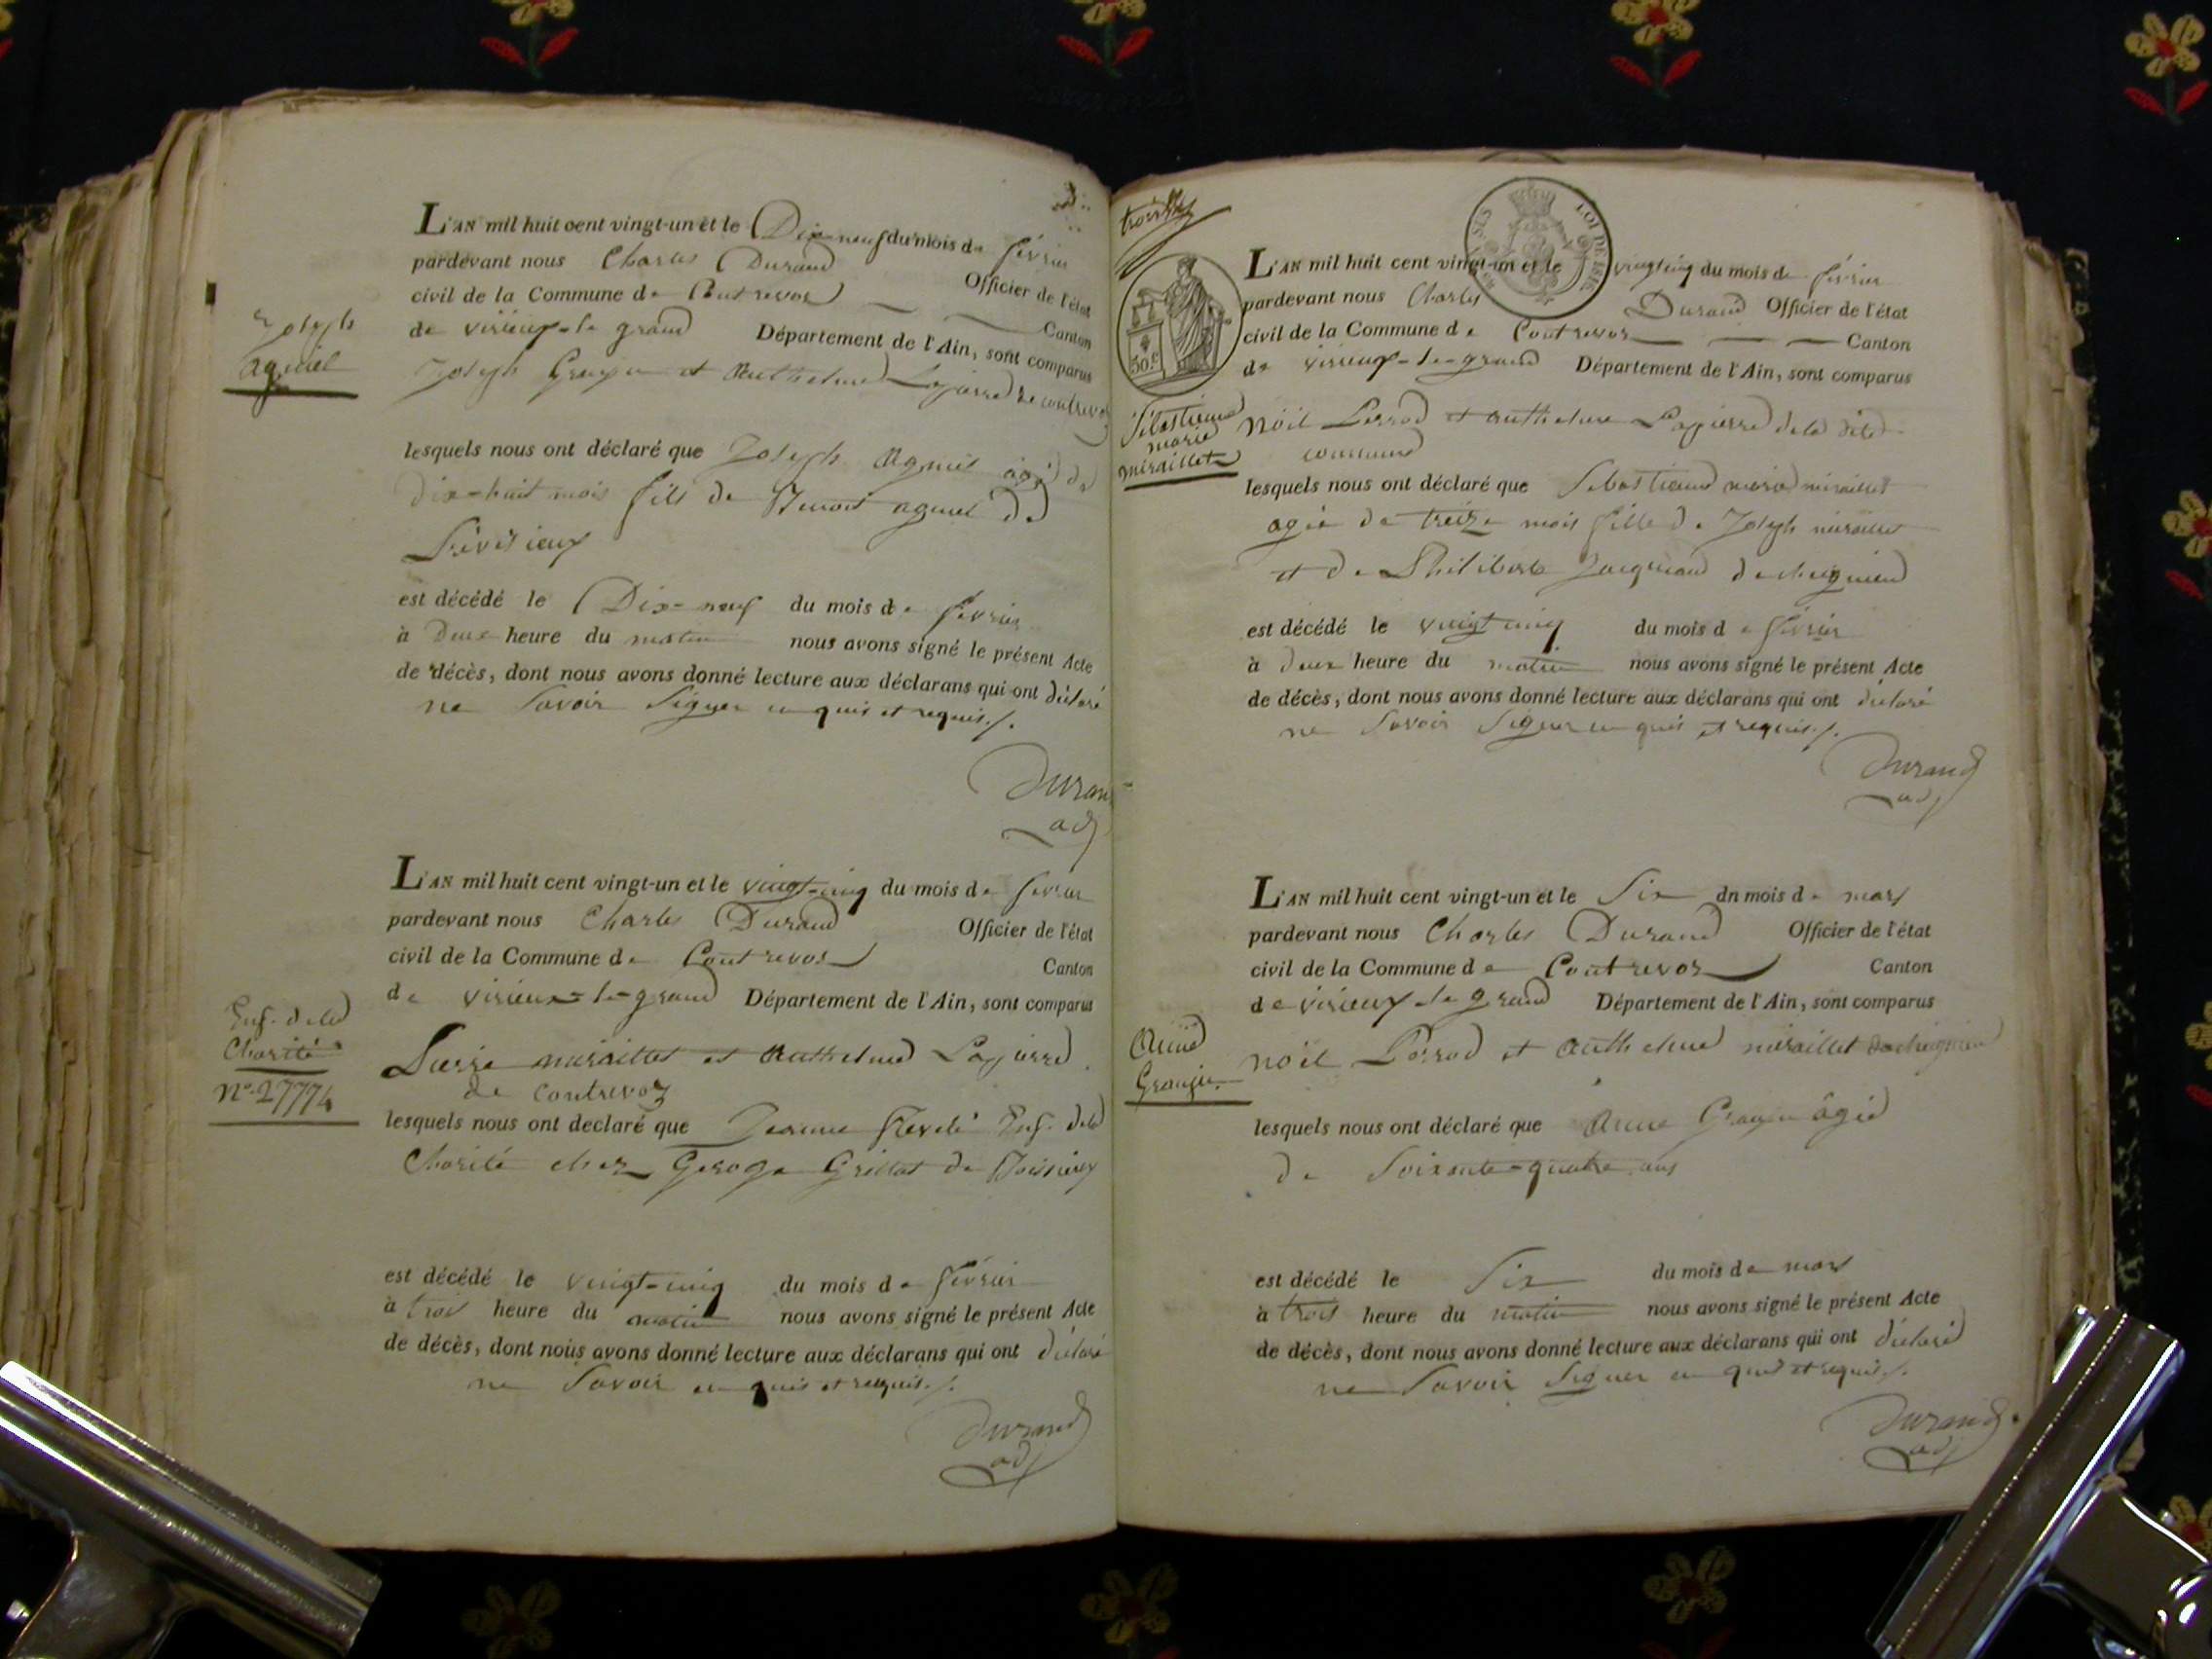 Joseph
agniel
L'AN mil huit cent vingt-un et le Dix-neuf du mois de février
pardevant nous Charles Durand Officier de l'état
civil de la Commune de Contrevoz Canton
de virieux-le grand Département de l'Ain, sont comparus
Joseph et Anthelme Lapierre de contrevoz
lesquels nous ont déclaré que Joseph Agniel âgé de
dix-huit mois fils de Benoit agniel de
Prévesieux
est décédé le Dix-neuf du mois de février
à Deux heure du matin nous avons signé le présent Acte
de décès, dont nous avons donné lecture aux déclarans qui ont déclaré
ne Savoir Signer enquis et requis./.
Durand
adj
Enf. de la
Charité
N°. 27774
L'AN mil huit cent vingt-un et le vingt-cinq du mois de février
pardevant nous Charles Durand Officier de l'état
civil de la Commune de Contrevoz Canton
de virieux-le-grand Département de l'Ain, sont comparus
Pierre miraillet et Anthelme Lapierre
de Contrevoz
lesquels nous ont declaré que Jeanne Enf. de la
Charité chez George Grillat de Boissieux
est décédé le vingt-cinq du mois de février
à trois heure du matin nous avons signé le présent Acte
de décès, dont nous avons donné lecture aux déclarans qui ont déclaré
ne Savoir enquis et requis./.
Durand
adj
LOI DE 1816
50 c
Sébastienne
marie
miraillet
L'AN mil huit cent vingt-un et le vingt cinq du mois de février
pardevant nous Charles Durand Officier de l'état
civil de la Commune de Contrevoz Canton
de virieux-le-grand Département de l'Ain, sont comparus
Noël Perrod et anthelme Lapierre de la dite
commune
lesquels nous ont déclaré que Sébastienne marie miraillet
agée de treize mois fille de Joseph miraillet
et de Philiberte Jacquand de cheignieu
est décédé le vingt cinq du mois de février
à deux heure du matin nous avons signé le présent Acte
de décès, dont nous avons donné lecture aux déclarans qui ont déclaré
ne Savoir Signer enquis et requis./.
Durand
adj
Anne
Grangie
L'AN mil huit cent vingt-un et le Six dn mois de mars
pardevant nous Charles Durand Officier de l'état
civil de la Commune de Contrevoz Canton
de virieux-le grand Département de l'Ain, sont comparus
Noël Perrod et Anthelme miraillet de cheignieu
lesquels nous ont déclaré que Anne âgée
de Soixante-quatre ans
est décédé le Six du mois de mars
à trois heure du matin nous avons signé le présent Acte
de décès, dont nous avons donné lecture aux déclarans qui ont déclaré
ne Savoir Signer enquis et requis./.
Durand
adj